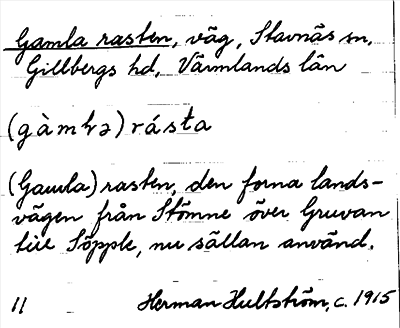 Gamla rasten, väg, Stavnäs sn,
Gillbergs hd, Värmlands län
rásta
(Gamla) rasten, den forna lands-
vägen från Stömne över Gruvan
till Söpple, nu sällan använd.
11 Herman Hultström, c. 1915